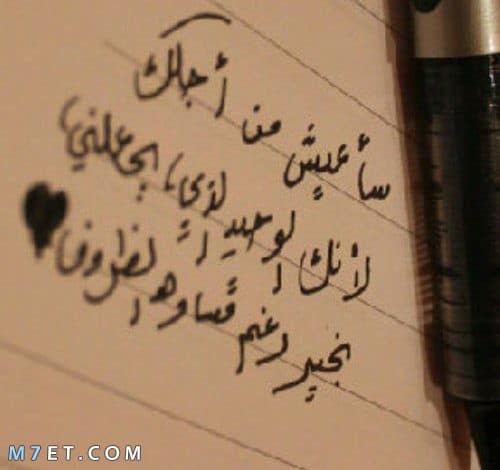 سأعيش من أجلك
لأنك الوحيد الذي يجعلني
بخير رغم قساوة الظروف
M7ET.COM